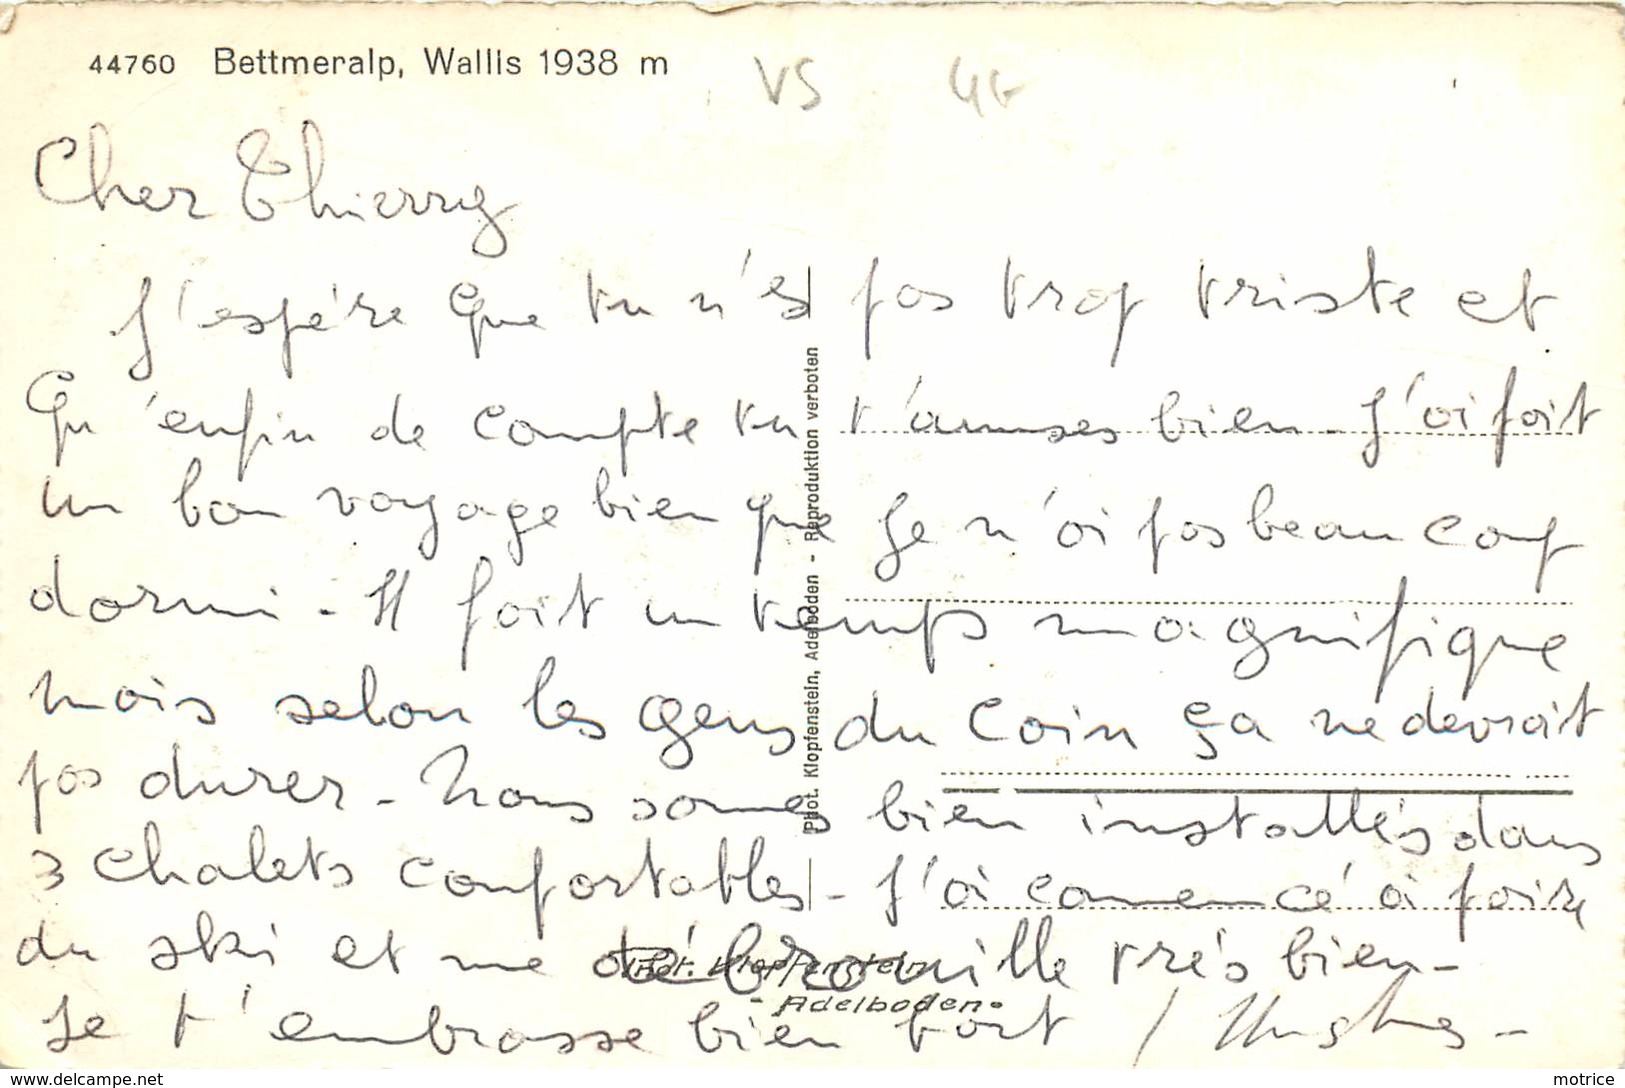 44760 Bettmeralp, Wallis 1938 m
VS
Cher Thierry
J'espére que tu n'es pas trop triste et
Qu'enfin de compte tu t'amuses bien - J'ai fait
un bon voyage bien que je n'ai pas beaucoup
dormi - Il fait un temps magnifique
mais selon les gens du coin ça ne devrait
pas durer - Nous somes bien installés dans
3 chalets confortables - J'ai comencé à faire
du ski et me débrouille très bien -
Je t'embrasse bien fort / Hughes -
Phot. Klopfenstein, Adelboden - Reproduktion verboten
Phot. Klopfenstein
- Adelboden -
www.delcampe.net
motrice